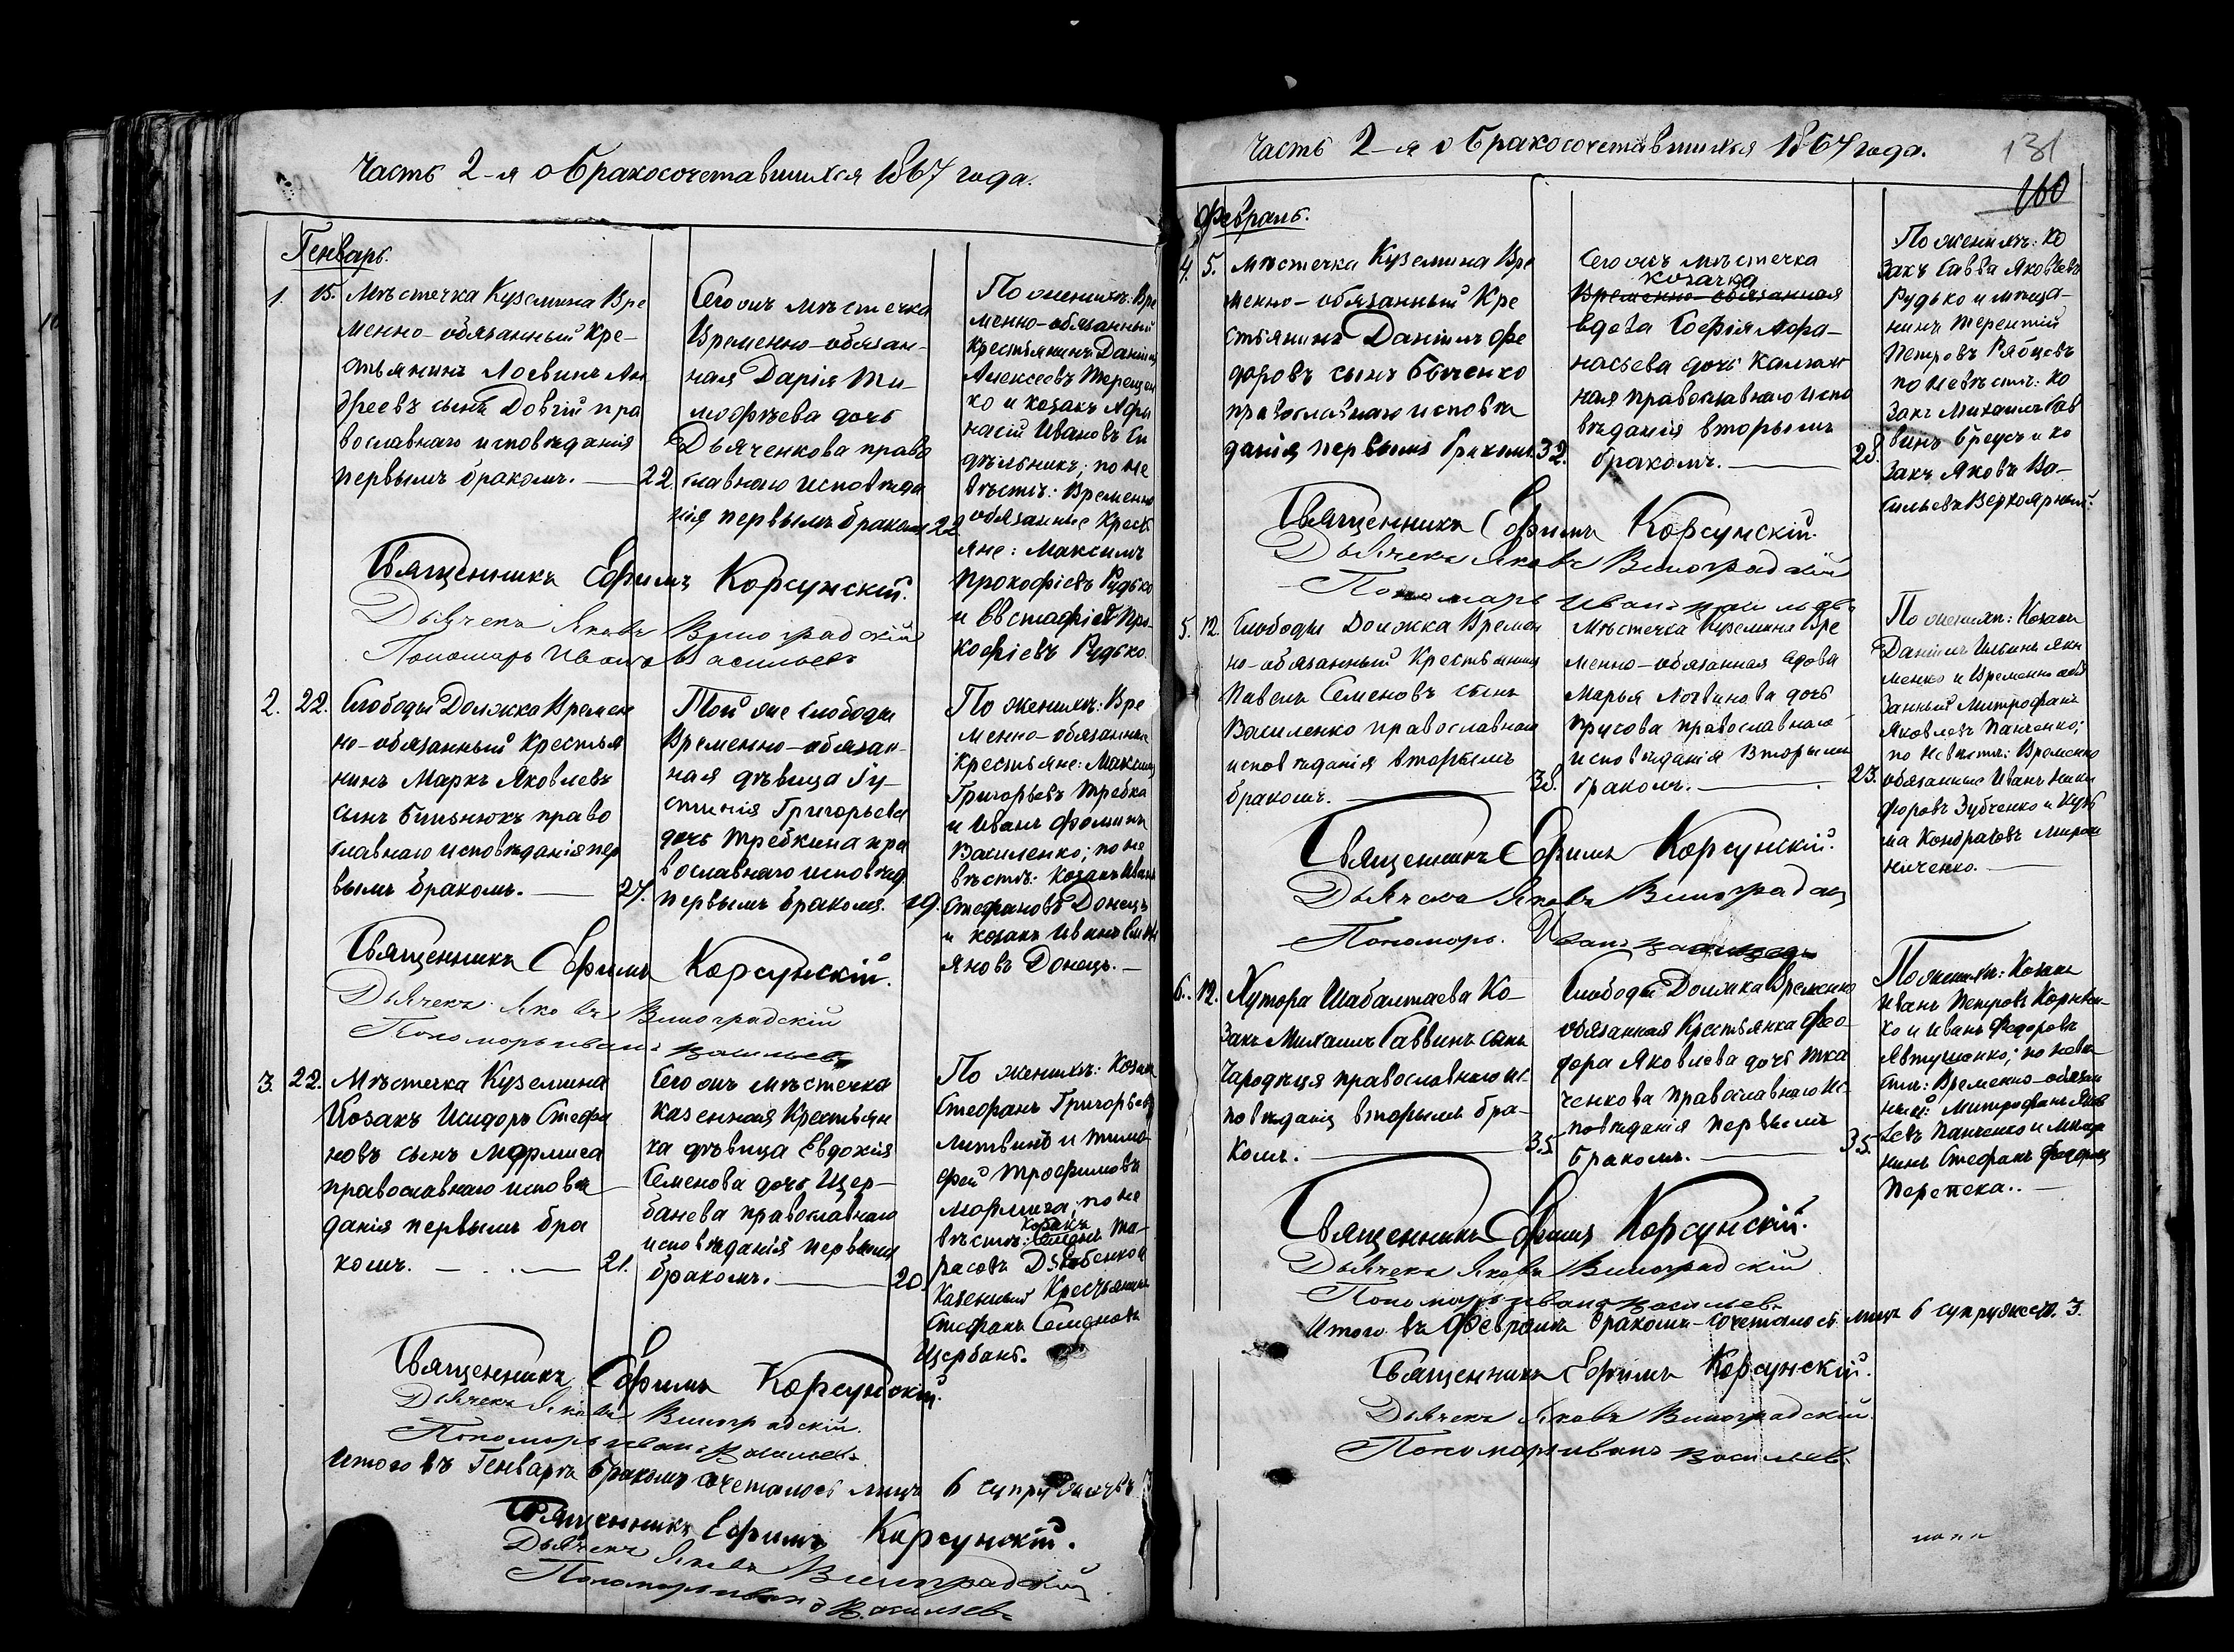 Часть 2-я о бракосочетавшихся 1867 года.
Генварь.
1. 15. Мѣстечка Куземина Вре
менно-обязанный Кре-
стьянинъ Логвинъ Ан
дреевъ сынъ Довгій пра
вославнаго исповѣданія
первымъ бракомъ. — 22.
Сегожъ мѣстечка
Временно-обязан-
ная Дарія Ти-
мофѣева дочь
Дьяченкова право
славнаго исповѣда
нія первымъ бракомъ 22.
По женихѣ: Вре
менно-обязанный
Крестьянинъ Даніилъ
Алексѣевъ Терещен
ко и козакъ Афа
насій Ивановъ
по не
вѣстѣ: Временно
обязанные Кресть
яне: Максимъ
Прокофіевъ Рудько
и Евстафій Про-
кофіевъ Рудько.
Священникъ Ефимъ Корсунскій.
Дьячекъ Яковъ Виноградскій
Пономарь Иванъ Васильевъ
2. 22. Слободы Должка Времен
но-обязанный Крестья
нинъ Маркъ Яковлевъ
сынъ право
славнаго исповѣданія пер
вымъ бракомъ. — 27.
Той же слободы
Временно-обязан-
ная дѣвица Гу-
стинія Григорьева
дочь Требкина пра
вославнаго исповѣд
первымъ бракомъ. 19.
По женихѣ: Вре
менно-обязанные
Крестьяне: Максимъ
Григорьевъ Требка
и Иванъ Фоминъ
Василенко; по не
вѣстѣ: Козакъ Иванъ
Стефановъ Донецъ
и козакъ Иванъ
Донецъ. —
Священникъ Ефимъ Корсунскій.
Дьячекъ Яковъ Виноградскій
Пономарь Иванъ Васильевъ
3. 22. Мѣстечка Куземина
Козакъ Исидоръ Стефа
новъ сынъ
православнаго исповѣ
данія первымъ бра
комъ. — . — 21.
Сегожъ мѣстечка
казенная Крестьян
ка дѣвица Евдокія
Семенова дочь Щер-
банева православнаго
исповѣданія первымъ
бракомъ. — 20.
По женихѣ: Козаки
Стефанъ Григорьевъ
Литвинъ и Тимо
фей Трофимовъ
по не
козакъ
вѣстѣ: Семенъ Та-
расовъ
Казенный Крестьянинъ
Стефанъ Семеновъ
Щербань.
Священникъ Ефимъ Корсунскій.
Дьячекъ Яковъ Виноградскій.
Пономарь Иванъ Васильевъ.
Итого въ Генварѣ бракомъ сочеталось лицъ 6 супружествъ 3
Священникъ Ефимъ Корсунскій.
Дьячекъ Яковъ Виноградскій
Пономарь Иванъ Васильевъ
Часть 2-я о бракосочетавшихся 1867 года.
131
160
Февраль.
4. 5. Мѣстечка Куземина Вре
менно-обязанный Кре
стьянинъ Даніилъ Фе
доровъ сынъ Быченко
православнаго исповѣ
данія первымъ бракомъ. 32.
Сегожъ мѣстечка
козачка
Временно-обязанная
вдова Софія Афа-
насьева дочь
ная православнаго испо
вѣданія вторымъ
бракомъ. — 28.
По женихѣ: Ко
закъ Савва Яковлевъ
Рудько и мѣща-
нинъ Терентій
Петровъ Рябцевъ
по невѣстѣ: Ко
закъ Михаилъ Сав
винъ и ко
закъ Яковъ Ва-
сильевъ Верхоярный.
Священникъ Ефимъ Корсунскій.
Дьячекъ Яковъ Виноградскій
Пономарь Иванъ Васильевъ
5. 12. Слободы Должка Времен
но-обязанный Крестьянинъ
Павелъ Семеновъ сынъ
Василенко православнаго
исповѣданія вторымъ
бракомъ. — 38.
Мѣстечка Куземина Вре
менно-обязанная вдова
Марья Логвинова дочь
Трусова православнаго
исповѣданія вторымъ
бракомъ. — 23.
По женихѣ: Козаки
Даніилъ Ильинъ Яки
менко и Временно обя
занный Митрофанъ
Яковлевъ Панченко;
по невѣстѣ: Временно
обязанные Иванъ Ники
форовъ Зубченко и Кузь
ма Кондратовъ Мирош
ниченко. —
Священникъ Ефимъ Корсунскій.
Дьячекъ Яковъ Виноградскій
Пономарь. Иванъ Васильевъ
6. 12. Хутора Шабалтаева Ко-
закъ Михаилъ Саввинъ сынъ
Чародѣця православнаго ис-
повѣданія вторымъ бра-
комъ. — 35.
Слободы Должка Временно
обязанная Крестьянка Фео-
дора Яковлева дочь Тка
ченкова православнаго ис-
повѣданія первымъ
бракомъ. — 35.
По женихѣ: Козаки
Иванъ Петровъ Корніен-
ко и Иванъ Федоровъ
Автушенко; по невѣ
стѣ: Временно-обязан
ный Митрофанъ Яков
левъ Панченко и мѣща
нинъ Стефанъ Федоровъ
Перепека.. —
Священникъ Ефимъ Корсунскій.
Дьячекъ Яковъ Виноградскій
Пономарь Иванъ Васильевъ
Итого въ Февралѣ бракомъ-сочеталось лицъ 6 супружеств. 3.
Священникъ Ефимъ Корсунскій.
Дьячекъ Яковъ Виноградскій.
Пономарь Иванъ Васильевъ.